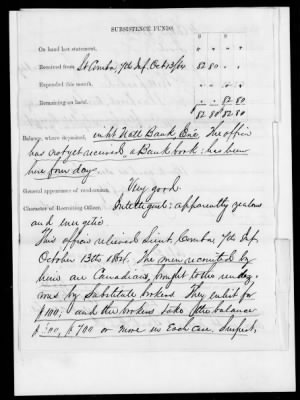 SUBSISTENCE FUNDS.
$ $
On hand last statement, " " " "
Received from Lt Comba, 7th Inf. Oct 13/64 82 80 " "
Expended this month, " " " "
Remaining on hand, " " 82 80
$ 82 80 $ 82 80
Balance, where deposited, in Natl Bank The officer
has not yet received a Bank book: has been
here four days.
General appearance of rendezvous, Very good
Character of Recruiting Officer, Intelligent; apparently zealous
and energetic.
This officer relieved Lieut. Comba, 7th Inf,
October 13th 1864. The men recruited by
him are Canadians, brought to the rendez-
vous by Substitute brokers. They enlist for
$100; and the brokers take the balance
$700 or more in each case.